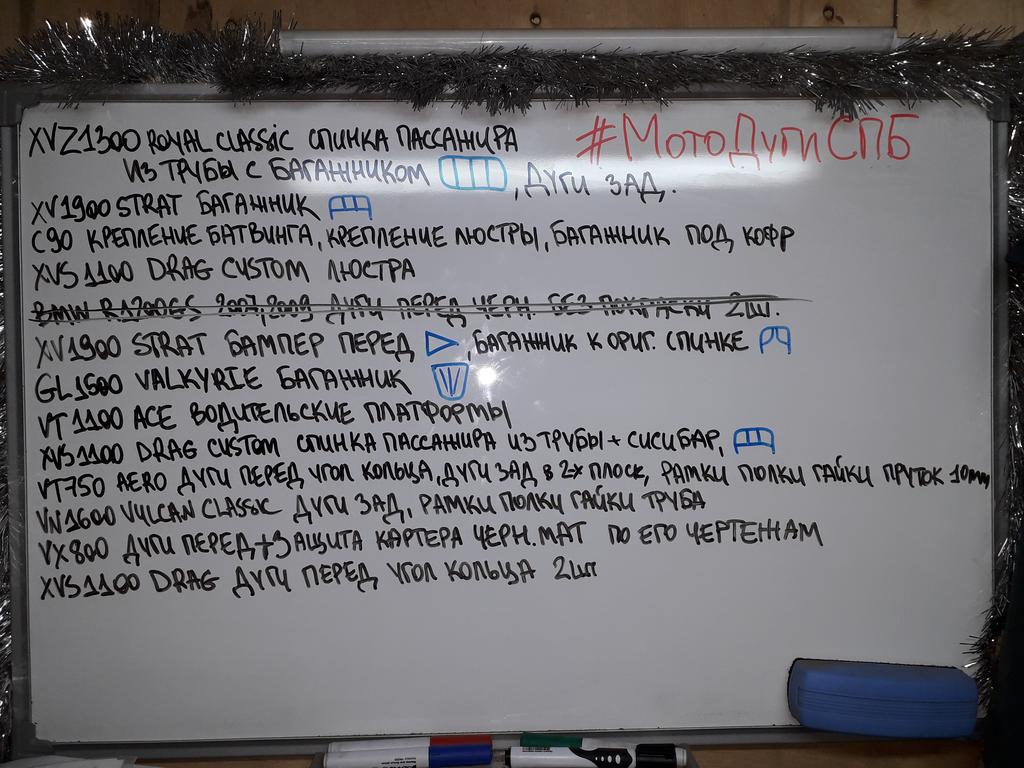 #МотоДугиСПБ
XVZ1300 ROYAL CLASSIC СПИНКА ПАССАЖИРА
ИЗ ТРУБЫ С БАГАЖНИКОМ , ДУГИ ЗАД.
XV1900 STRAT БАГАЖНИК
C90 КРЕПЛЕНИЕ БАТВИНГА, КРЕПЛЕНИЕ ЛЮСТРЫ, БАГАЖНИК ПОД КОФР
XVS1100 DRAG CUSTOM ЛЮСТРА
BMW R1200GS 2007,2009 ДУГИ ПЕРЕД ЧЕРН. БЕЗ ПОКРАСКИ 2ШТ.
XV1900 STRAT БАМПЕР ПЕРЕД , БАГАЖНИК К ОРИГ. СПИНКЕ
GL1500 VALKYRIE БАГАЖНИК
VT1100 ACE ВОДИТЕЛЬСКИЕ ПЛАТФОРМЫ
XVS1100 DRAG CUSTOM СПИНКА ПАССАЖИРА ИЗ ТРУБЫ + СИСИБАР,
VT750 AERO ДУГИ ПЕРЕД УГОЛ КОЛЬЦА, ДУГИ ЗАД в 2х ПЛОСК, РАМКИ ПОЛКИ ГАЙКИ ПРУТОК 10mm
VN1600 VULCAN CLASSIC ДУГИ ЗАД, РАМКИ ПОЛКИ ГАЙКИ ТРУБА
VX800 ДУГИ ПЕРЕД+ЗАЩИТА КАРТЕРА ЧЕРН. МАТ ПО ЕГО ЧЕРТЕЖАМ
XVS1100 DRAG ДУГИ ПЕРЕД УГОЛ КОЛЬЦА 2шт